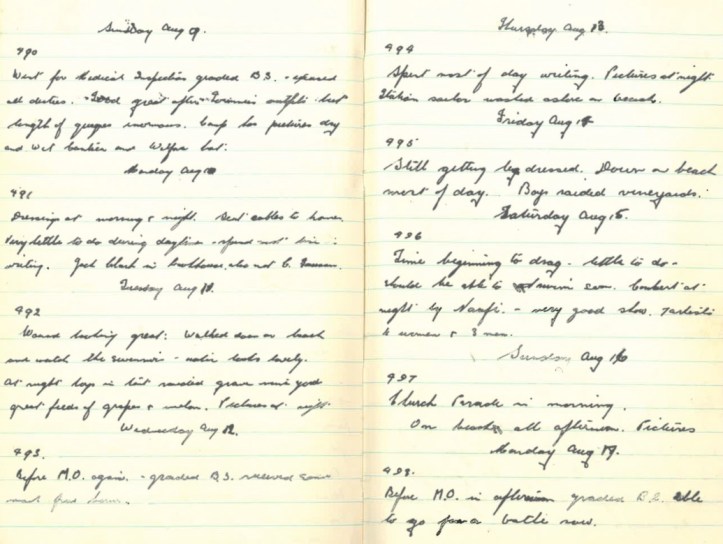 Sunday Aug 9.
490
Went for Medical Inspection graded B.S. -
all duties. - great
length of queues enormous. Camp has pictures day
and wet canteen and
Monday Aug 10
491
Dressings at morning & night. Sent cables to home.
Very little to do during daytime - spend most time in
writing. Jack Clark in also met C.
Tuesday Aug 11.
492
Wound looking great: Walked down on beach
and watch the swimmers - water looks lovely.
At night boys in tent raided grape vine good
great feeds of grapes & melon. Pictures at night
Wednesday Aug 12.
493.
Before M.O. again. - graded B.S. received some
mail from home.
Thursday Aug 13.
494
Spent most of day writing. Pictures at night
Italian sailor washed ashore on beach.
Friday Aug 14
495
Still getting leg dressed. Down on beach
most of day. Boys raided vineyards.
Saturday Aug 15.
496
Time beginning to drag - little to do -
should be able to swim soon. Concert at
night by Naafi. - very good show.
4 women & 3 men.
Sunday Aug 16
497
Church Parade in morning.
On beach all afternoon. Pictures
Monday Aug 17.
498.
Before M.O. in afternoon graded B.S. able
to go for a bathe now.